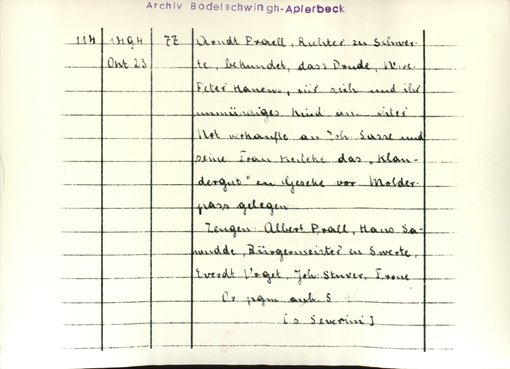 Archiv Bodelschwingh-Aplerbeck
114 1494 77 Arndt Prall, Richter zu Schwer-
Okt 23 te, bekundet, dass Drude, Wwe
Peter Hanens, für sich und ihr
unmündiges Kind aus
Not verkaufte an Joh. Sasse und
seine Frau das „Klau-
dergut" in Geseke vor Molder-
pass gelegen
Zeugen: Albert Prall, Hans Sa-
wudde, Bürgermeister zu Swerte,
Everdt Voget, Joh. Stuver, Frone
Or pgm anh. S
[s Severini]